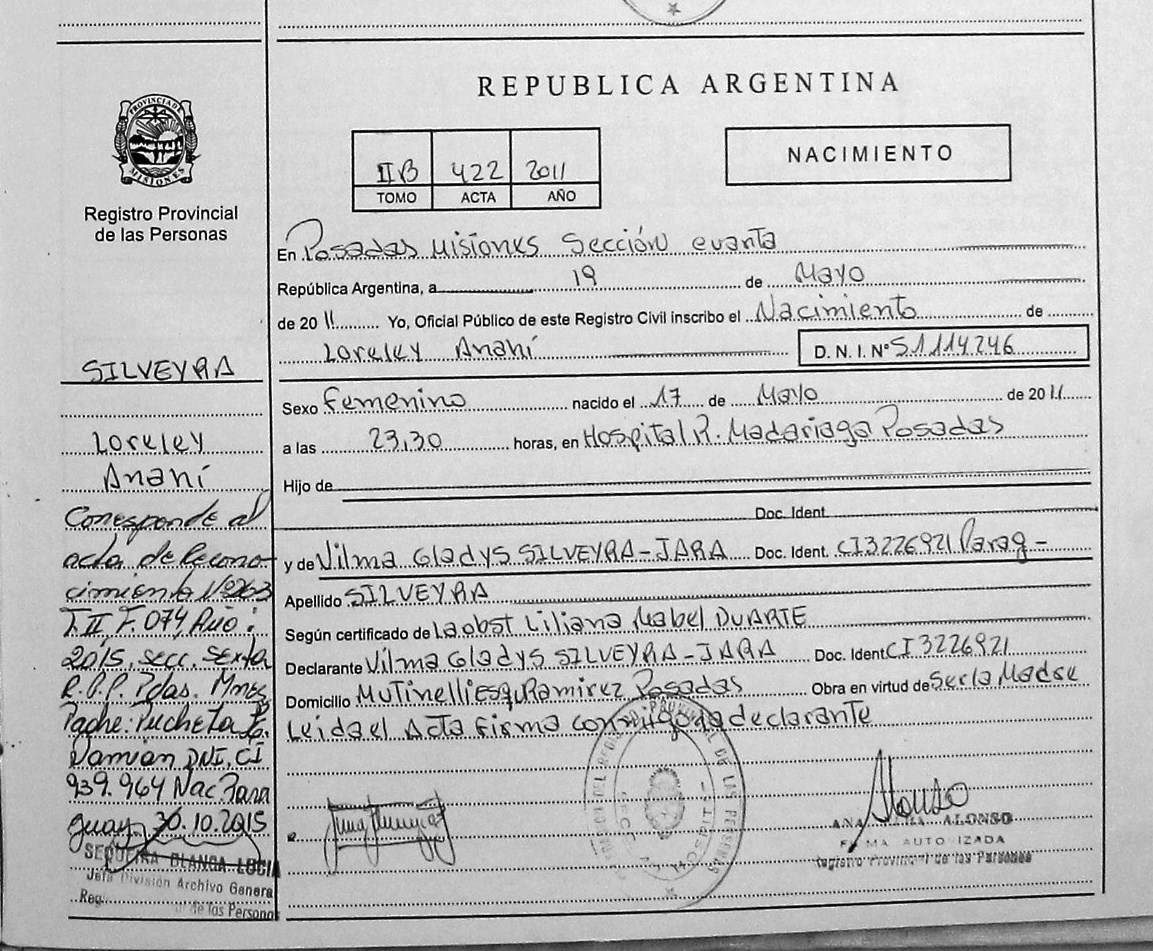 REPUBLICA ARGENTINA
PROVINCIA DE
MISIONES
Registro Provincial
de las Personas
IIB 422 2011
TOMO ACTA AÑO
NACIMIENTO
En Posadas Misiones Sección cuarta
República Argentina, a 19 de Mayo
de 2011 Yo, Oficial Público de este Registro Civil inscribo el Nacimiento de
Loreley Anahí D. N. I. Nº 51114246
Sexo Femenino nacido el 17 de Mayo de 2011
a las 23,30 horas, en Hospital R. Madariaga Posadas
Hijo de
Doc. Ident.
y de Vilma Gladys SILVEYRA-JARA Doc. Ident. CI3226921 Parag-
Apellido SILVEYRA
Según certificado de La obst Liliana Mabel DUARTE
Declarante Vilma Gladys SILVEYRA-JARA Doc. Ident CI3226921
Domicilio Mutinelli esqu Ramirez Posadas Obra en virtud de Ser la Madre
Leida el Acta firma conmigo la declarante
SILVEYRA
Loreley
Anahí
Corresponde al
acta de Recono-
cimiento Nº 263
T. II F. 074 Año:
2015, secc. sexta
R.P.P. Pdas. Mnes
Padre: Pucheta
Damian DNI. CI
939.964 Nac. Para
guay. 30.10.2015
SEQUEIRA BLANCA LUCIA
Jefa División Archivo General
Reg. de las Personas
DEL REGISTRO PROVINCIAL DE LAS PERSONAS
Alonso
ANA ALONSO
FIRMA AUTORIZADA
Registro Provincial de las Personas